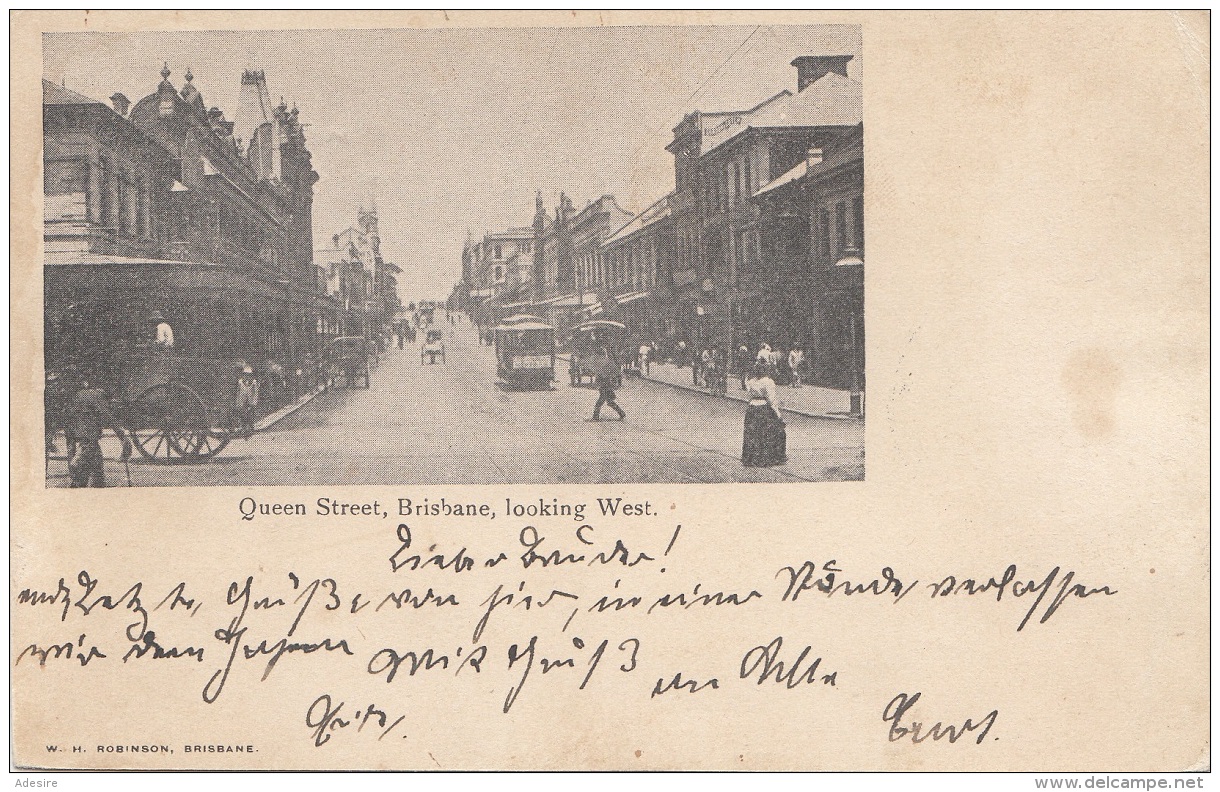 Queen Street, Brisbane, looking West.
Lieber Bruder!
Letzte Grüße von hier, in einer Stunde verlassen
wir den Hafen Mit Gruß an Alle
W. H. ROBINSON, BRISBANE.
Adesire
www.delcampe.net